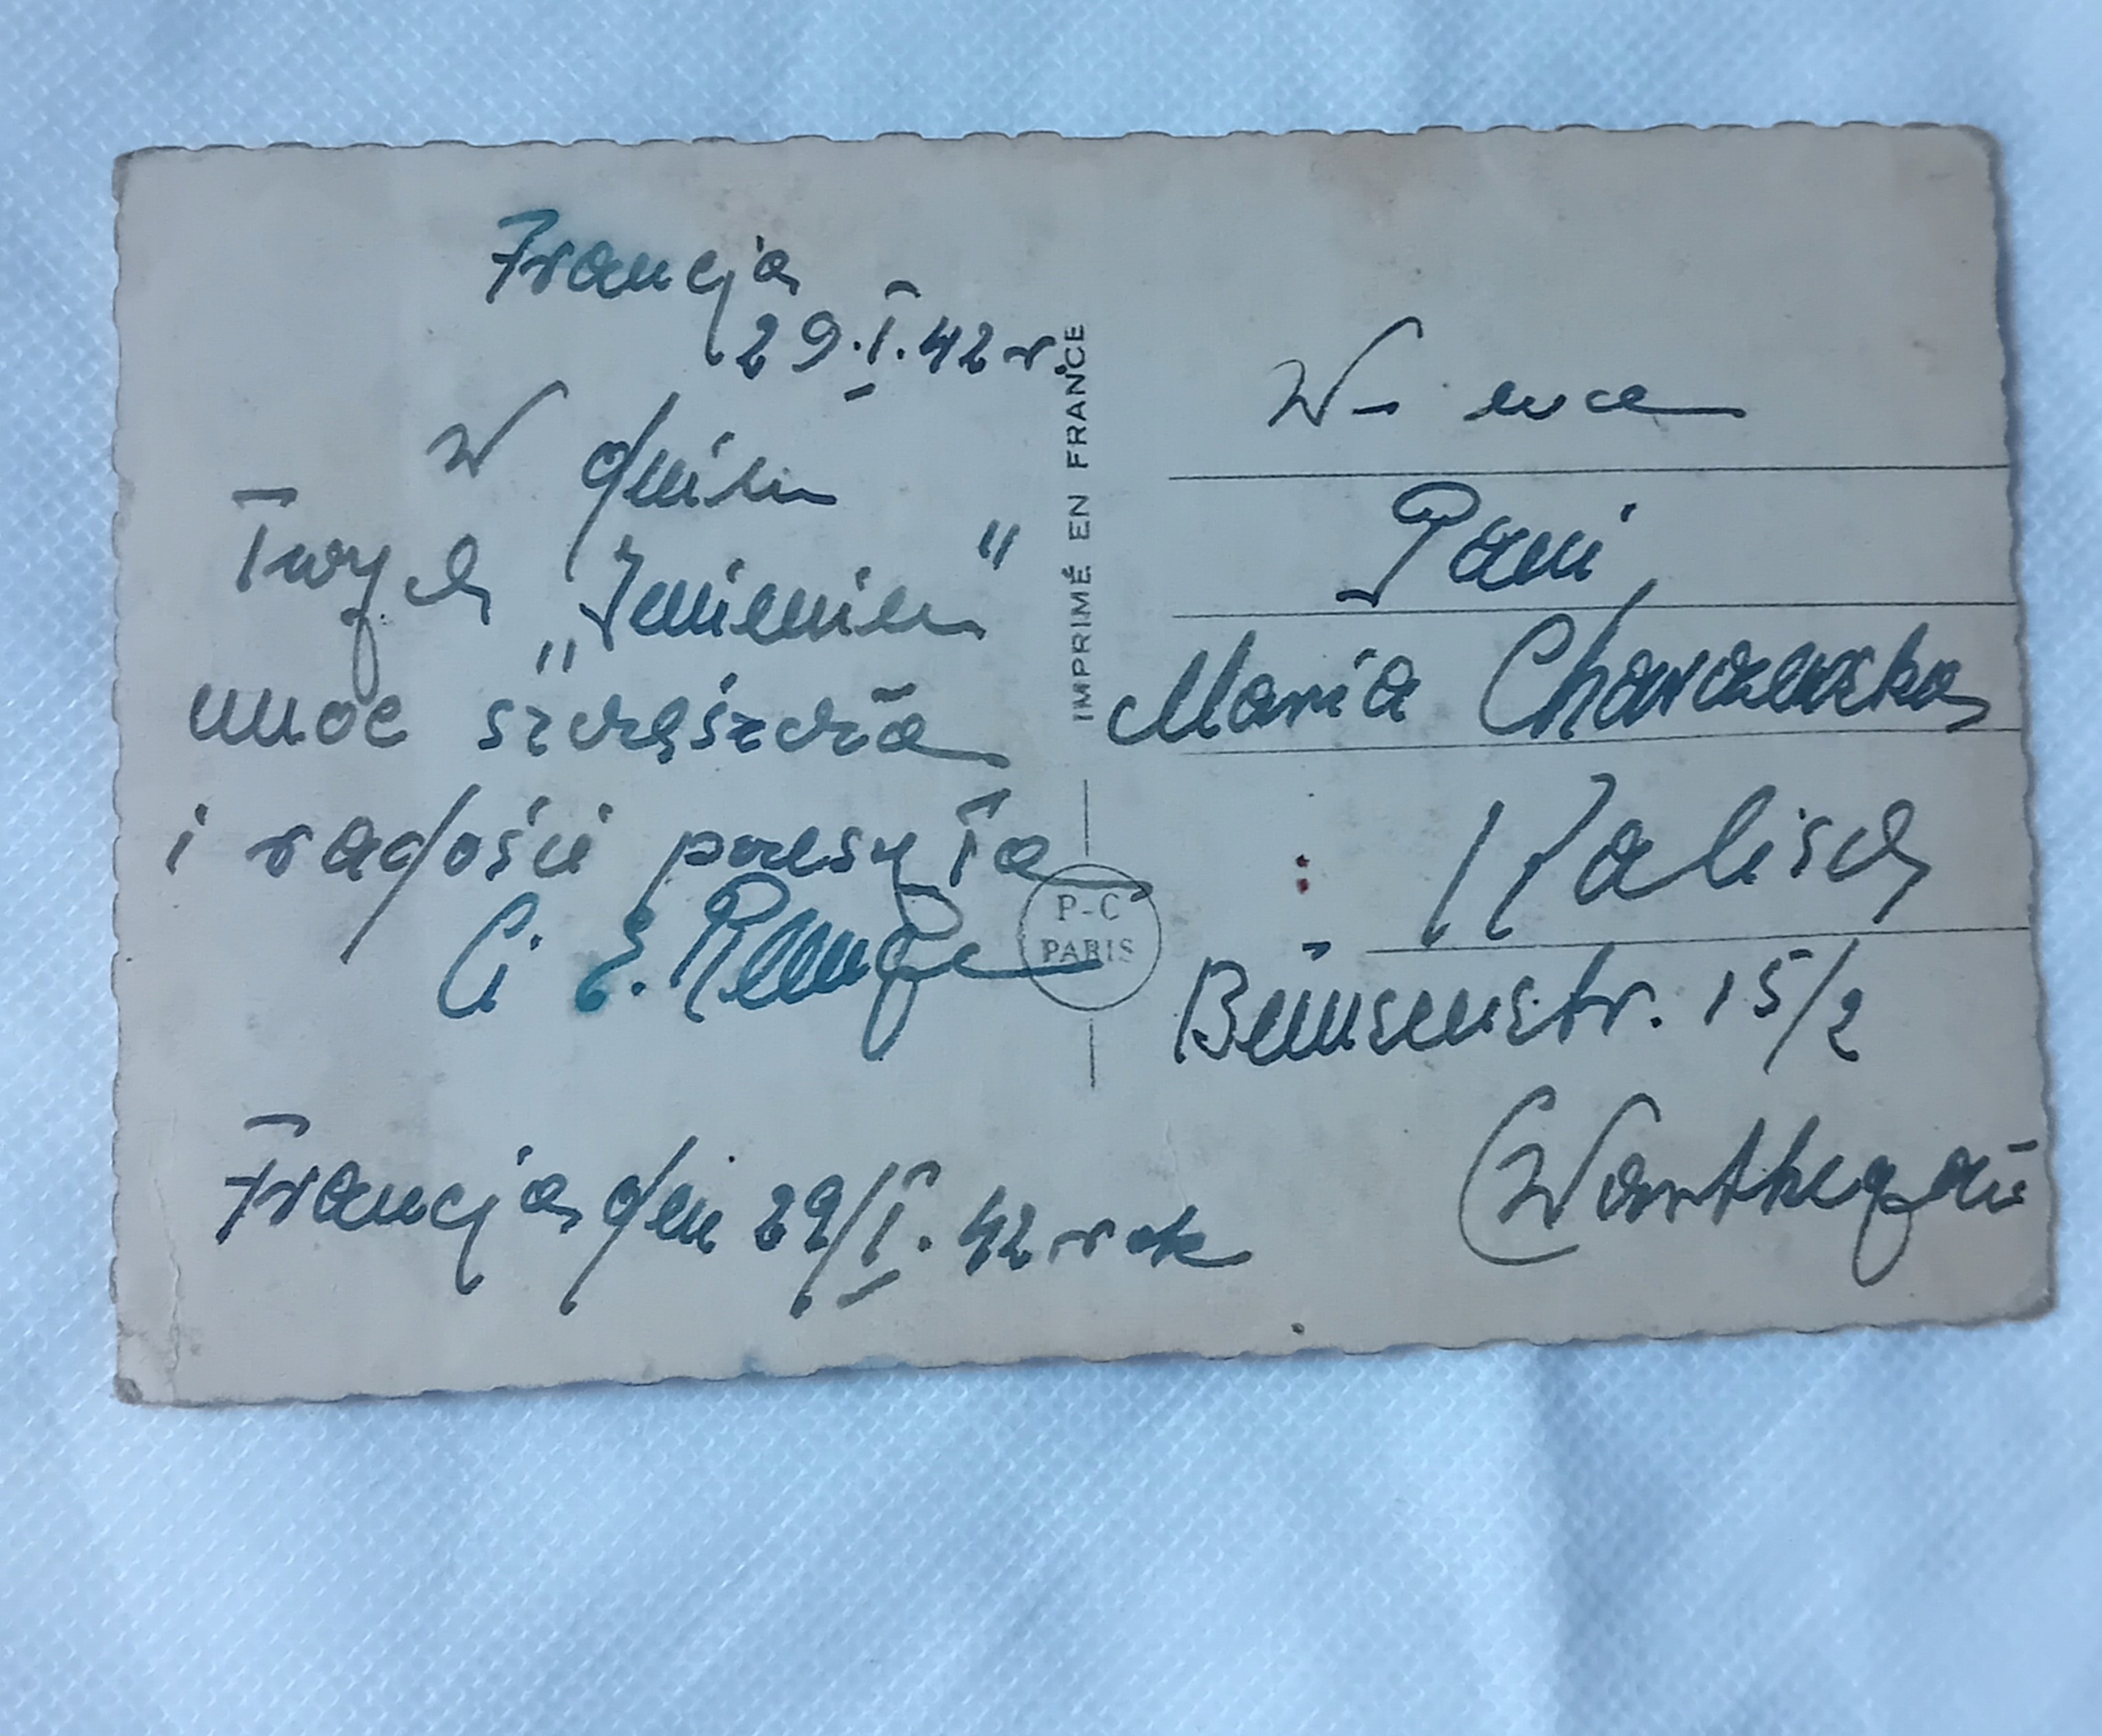 Francja
29.I.42 r.
W dniu
Twych „Imienin"
moc szczęścia
i radości przesyła
Ci E.
Francja, den 29/I. 42 rok
IMPRIMÉ EN FRANCE
P-C
PARIS
W-na
Pani
Maria Charczewska
Kalisch
15/2
(Warthegau